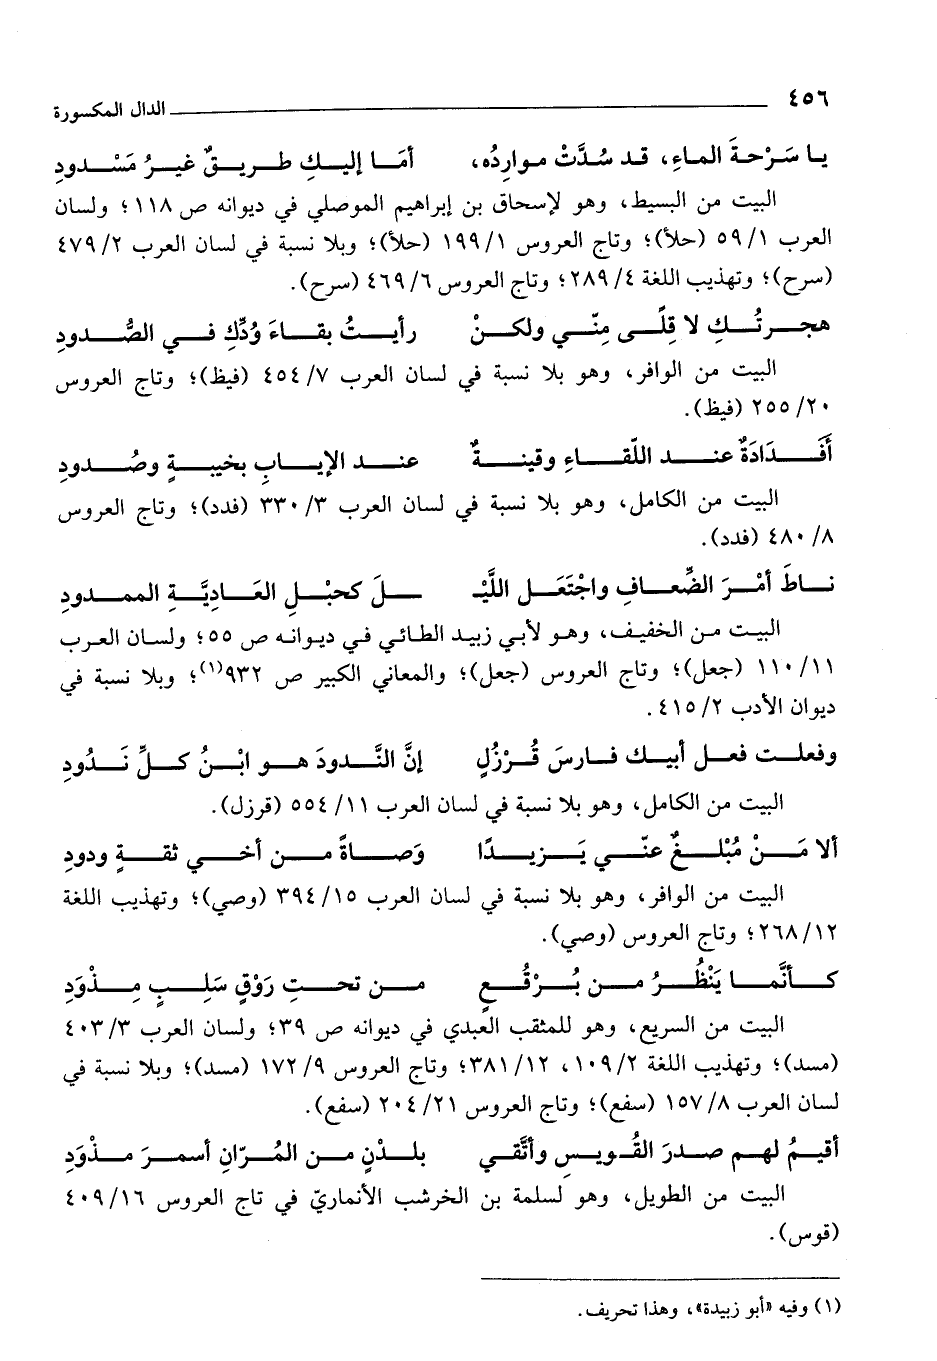 ٤٥٦ الدال المكسورة
يا سَرْحةَ الماءِ، قد سُدَّتْ مواردُه، أمَا إليكِ طريقٌ غيرُ مَسْدودِ
البيت من البسيط، وهو لإسحاق بن إبراهيم الموصلي في ديوانه ص ١١٨؛ ولسان
العرب ١/ ٥٩ (حلأ)؛ وتاج العروس ١/ ١٩٩ (حلأ)؛ وبلا نسبة في لسان العرب ٢/ ٤٧٩
(سرح)؛ وتهذيب اللغة ٤/ ٢٨٩؛ وتاج العروس ٦/ ٤٦٩ (سرح).
هجرتُكِ لا قِلًى مِنّي ولكنْ رأيتُ بقاءَ وُدِّكِ في الصُّدودِ
البيت من الوافر، وهو بلا نسبة في لسان العرب ٧/ ٤٥٤ (فيظ)؛ وتاج العروس
٢٠/ ٢٥٥ (فيظ).
أَفَدَادَةٌ عند اللّقاءِ وقينةٌ عند الإيابِ بخيبةٍ وصُدودِ
البيت من الكامل، وهو بلا نسبة في لسان العرب ٣/ ٣٣٠ (فدد)؛ وتاج العروس
٨/ ٤٨٠ (فدد).
ناطَ أمْرَ الضِّعافِ واجْتَعَل اللَّيْـ ـلَ كحبْلِ العَاديَّةِ الممدودِ
البيت من الخفيف، وهو لأبي زبيد الطائي في ديوانه ص ٥٥؛ ولسان العرب
١١/ ١١٠ (جعل)؛ وتاج العروس (جعل)؛ والمعاني الكبير ص ٩٣٢(١)؛ وبلا نسبة في
ديوان الأدب ٢/ ٤١٥.
وفعلت فعل أبيك فارسَ قُرْزُلٍ إنَّ النَّدودَ هو ابْنُ كلِّ نَدُودِ
البيت من الكامل، وهو بلا نسبة في لسان العرب ١١/ ٥٥٤ (قرزل).
ألا مَنْ مُبْلغٌ عنّي يَزيدًا وَصاةً من أخي ثقةٍ ودودِ
البيت من الوافر، وهو بلا نسبة في لسان العرب ١٥/ ٣٩٤ (وصي)؛ وتهذيب اللغة
١٢/ ٢٦٨؛ وتاج العروس (وصي).
كأنَّما يَنْظُرُ من بُرْقُعٍ من تحتِ رَوْقٍ سَلِبٍ مِذْوَدِ
البيت من السريع، وهو للمثقب العبدي في ديوانه ص ٣٩؛ ولسان العرب ٣/ ٤٠٣
(مسد)؛ وتهذيب اللغة ٢/ ١٠٩، ١٢/ ٣٨١؛ وتاج العروس ٩/ ١٧٢ (مسد)؛ وبلا نسبة في
لسان العرب ٨/ ١٥٧ (سفع)؛ وتاج العروس ٢١/ ٢٠٤ (سفع).
أقيمُ لهم صدرَ القُويسِ وأتَّقي بلدْنٍ من المُرّانِ أسمرَ مذْوَدِ
البيت من الطويل، وهو لسلمة بن الخرشب الأنماريّ في تاج العروس ١٦/ ٤٠٩
(قوس).
(١) وفيه «أبو زبيدة»، وهذا تحريف.